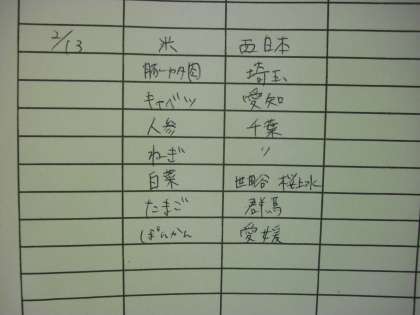 2/13 米 西日本
豚一カタ肉 埼玉
キャベツ 愛知
人参 千葉
ねぎ 〃
白菜 世田谷 桜上水
たまご 群馬
ぽんかん 愛媛